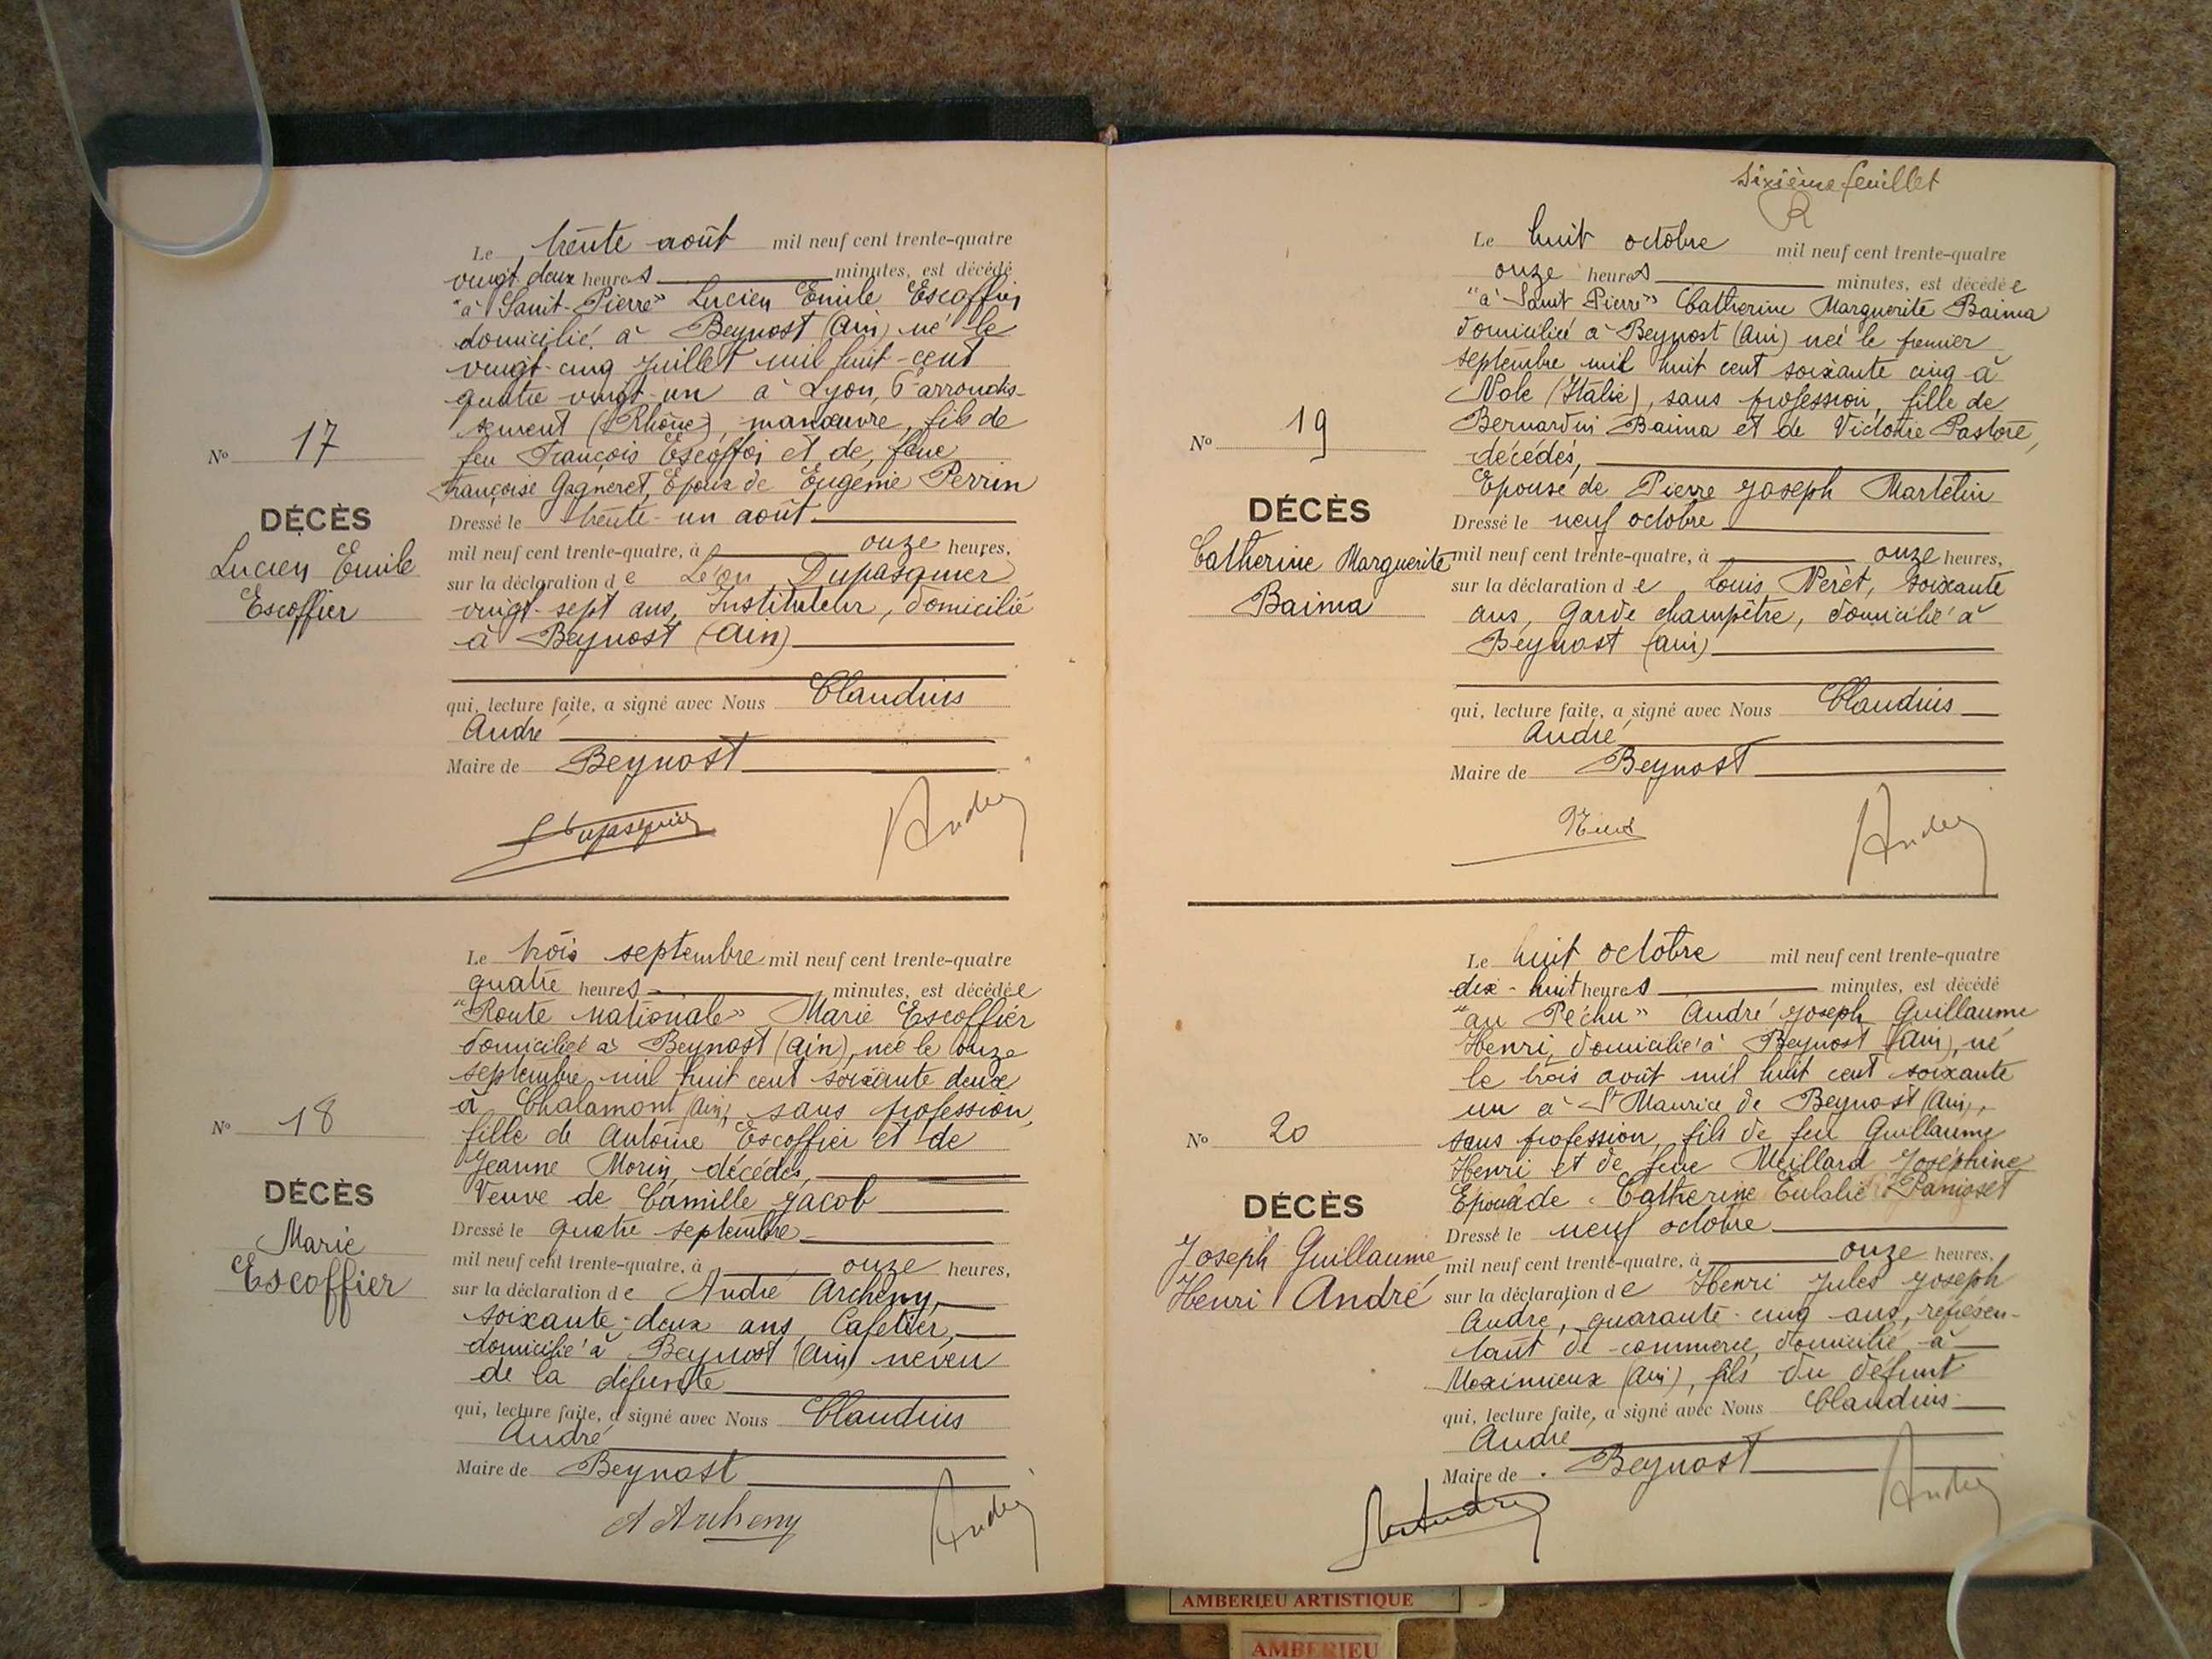 Le trente août mil neuf cent trente-quatre
vingt deux heures minutes, est décédé
"à Saint-Pierre" Lucien Emile Escoffier
domicilié à Beynost (Ain) né le
vingt-cinq juillet mil huit-cent
quatre vingt-un à Lyon, 6e arrondis-
sement (Rhône), manœuvre, fils de
feu François Escoffier et de feue
Françoise Gagneret, Epoux de Eugénie Perrin
Nº 17
DÉCÈS
Lucien Emile
Escoffier
Dressé le trente-un août
mil neuf cent trente-quatre, à onze heures,
sur la déclaration de Léon Dupasquier
vingt-sept ans, Instituteur, domicilié
à Beynost (Ain)
qui, lecture faite, a signé avec Nous Claudius
André
Maire de Beynost
Dupasquier André
Le trois septembre mil neuf cent trente-quatre
quatre heures minutes, est décédée
"Route nationale" Marie Escoffier
domiciliée à Beynost (Ain), née le onze
septembre mil huit cent soixante deux
à Chalamont (Ain), sans profession,
fille de Antoine Escoffier et de
Jeanne Morin, décédés,
Veuve de Camille Jacob
Nº 18
DÉCÈS
Marie
Escoffier
Dressé le quatre septembre
mil neuf cent trente-quatre, à onze heures,
sur la déclaration de André Archeny,
soixante-deux ans, Cafetier,
domicilié à Beynost (Ain) neveu
de la défunte
qui, lecture faite, a signé avec Nous Claudius
André
Maire de Beynost
A Archeny André
Sixième feuillet
R
Le huit octobre mil neuf cent trente-quatre
onze heures minutes, est décédée
"à Saint Pierre" Catherine Marguerite Baima
domiciliée à Beynost (Ain) née le premier
septembre mil huit cent soixante cinq à
Nole (Italie), sans profession, fille de
Bernardin Baima et de Victoire Pastore,
décédés,
Epouse de Pierre Joseph Martelin
Nº 19
DÉCÈS
Catherine Marguerite
Baima
Dressé le neuf octobre
mil neuf cent trente-quatre, à onze heures,
sur la déclaration de Louis Néret, soixante
ans, Garde champêtre, domicilié à
Beynost (Ain)
qui, lecture faite, a signé avec Nous Claudius
André
Maire de Beynost
André
Le huit octobre mil neuf cent trente-quatre
dix-huit heures minutes, est décédé
"au Péchu" André Joseph Guillaume
Henri, domicilié à Beynost (Ain), né
le trois août mil huit cent soixante
un à St Maurice de Beynost (Ain),
sans profession, fils de feu Guillaume
Henri et de feue Meillard Joséphine
Epoux de Catherine Eulalie Panisset
Nº 20
DÉCÈS
Joseph Guillaume
Henri André
Dressé le neuf octobre
mil neuf cent trente-quatre, à onze heures,
sur la déclaration de Henri Jules Joseph
André, quarante-cinq ans, représen-
tant de commerce, domicilié à
Meximieux (Ain), fils du défunt
qui, lecture faite, a signé avec Nous Claudius
André
Maire de Beynost
André
AMBERIEU ARTISTIQUE
AMBERIEU